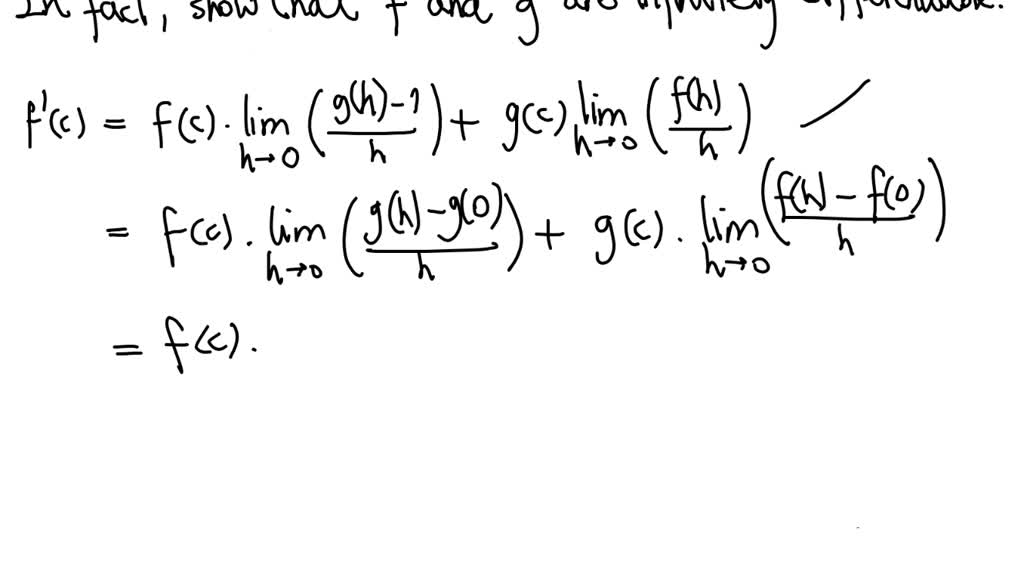 In fact, show that f and g are infinitely differentiable.
f'(c) = f(c) · lim h→0 (g(h) − 1 / h) + g(c) lim h→0 (f(h) / h)
= f(c) · lim h→0 (g(h) − g(0) / h) + g(c) · lim h→0 (f(h) − f(0) / h)
= f(c) ·